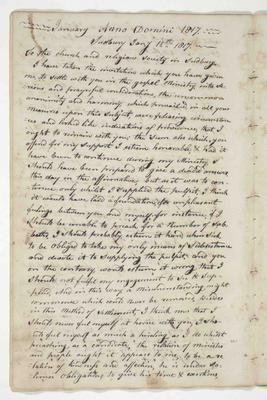 January Anno Domini 1817.
Sudbury Jany 18th 1817.
To the church and religious society in Sudbury
I have taken the invitation which you have given
me to settle with you in the gospel ministry into se-
rious and prayerful consideration, the uncommon
unanimity and harmony which prevailed in all your
measures upon this subject, were pleasing circumstan-
ces and looked like indications of providence, that I
ought to remain with you. The sum also which you
offered for my support I esteem honorable, & had it
have been to continue during my ministry I
should have been prepared to give a decided answer
this day in the affirmative, but as it was to con-
tinue only whilst I supplied the pulpit, I think
it would have laid a foundation for unpleasant
feelings between you and myself, for instance, if I
should be unable to preach for a number of Sab-
baths, I should probably esteem it hard should I
be obliged to take my only means of subsistence
and devote it to supplying the pulpit, and you
on the contrary would esteem it wrong that I
should not fulfil my engagement to you &
also in this way a misunderstanding might
commence which could never be remain'd. Besides
in this method of settlement, I think that I
should never feel myself at home with you, I sho-
uld feel myself as much a hireling as I do whilst
preaching as a candidate, the relation of minister
and people ought it appears to me, to be a re-
lation of kindness and affection he is under so-
lemn obligations to give his time & exertions